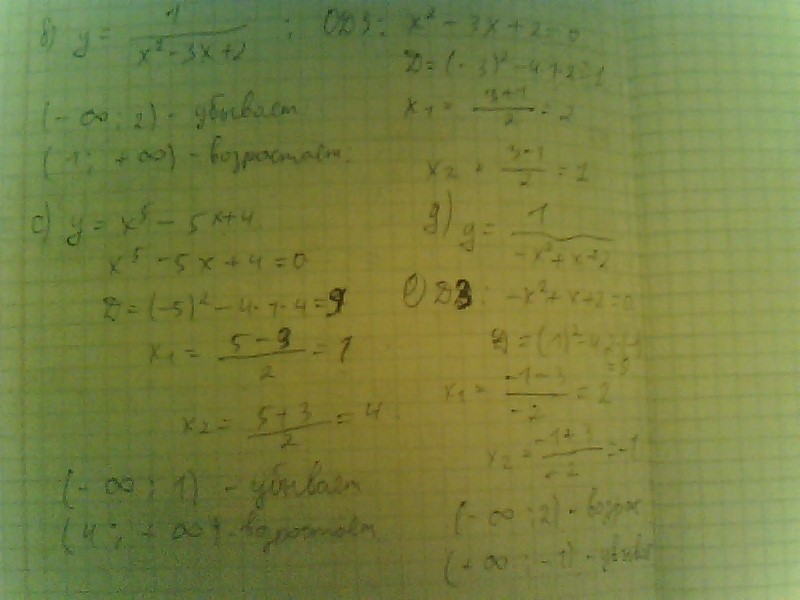 б) y = 1/(x² - 3x + 2) ; ОДЗ: x² - 3x + 2 = 0
D = (-3)² - 4·1·2 = 1
x₁ = (3+1)/2 = 2
x₂ = (3-1)/2 = 1
(-∞; 2) - убывает
(1; +∞) - возростает.
c) y = x⁵ - 5x + 4
x⁵ - 5x + 4 = 0
D = (-5)² - 4·1·4 = 9
x₁ = (5-3)/2 = 1
x₂ = (5+3)/2 = 4.
(-∞; 1) - убывает
(4; +∞) - возростает
g) y = 1/(-x² + x + 2)
ОДЗ: -x² + x + 2 = 0
D = (1)² - 4
x₁ = (-1-3)/-2 = 2
x₂ = (-1+3)/-2 = -1
(-∞; 2) - возрос
(+∞; -1) - убыва